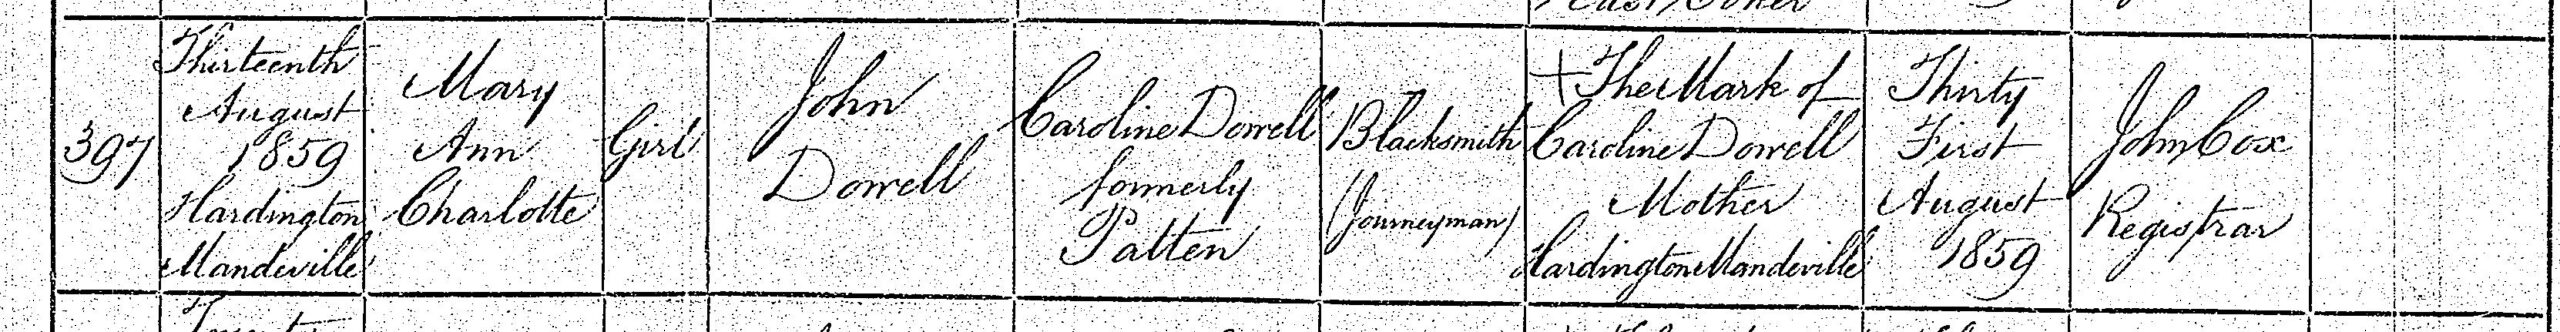 397
Thirteenth
August
1859
Hardington
Mandeville
Mary
Ann
Charlotte
Girl
John
Dowell
Caroline Dowell
formerly
Patten
Blacksmith
(Journeyman)
+ The Mark of
Caroline Dowell
Mother
Hardington Mandeville
Thirty
First
August
1859
John Cox
Registrar